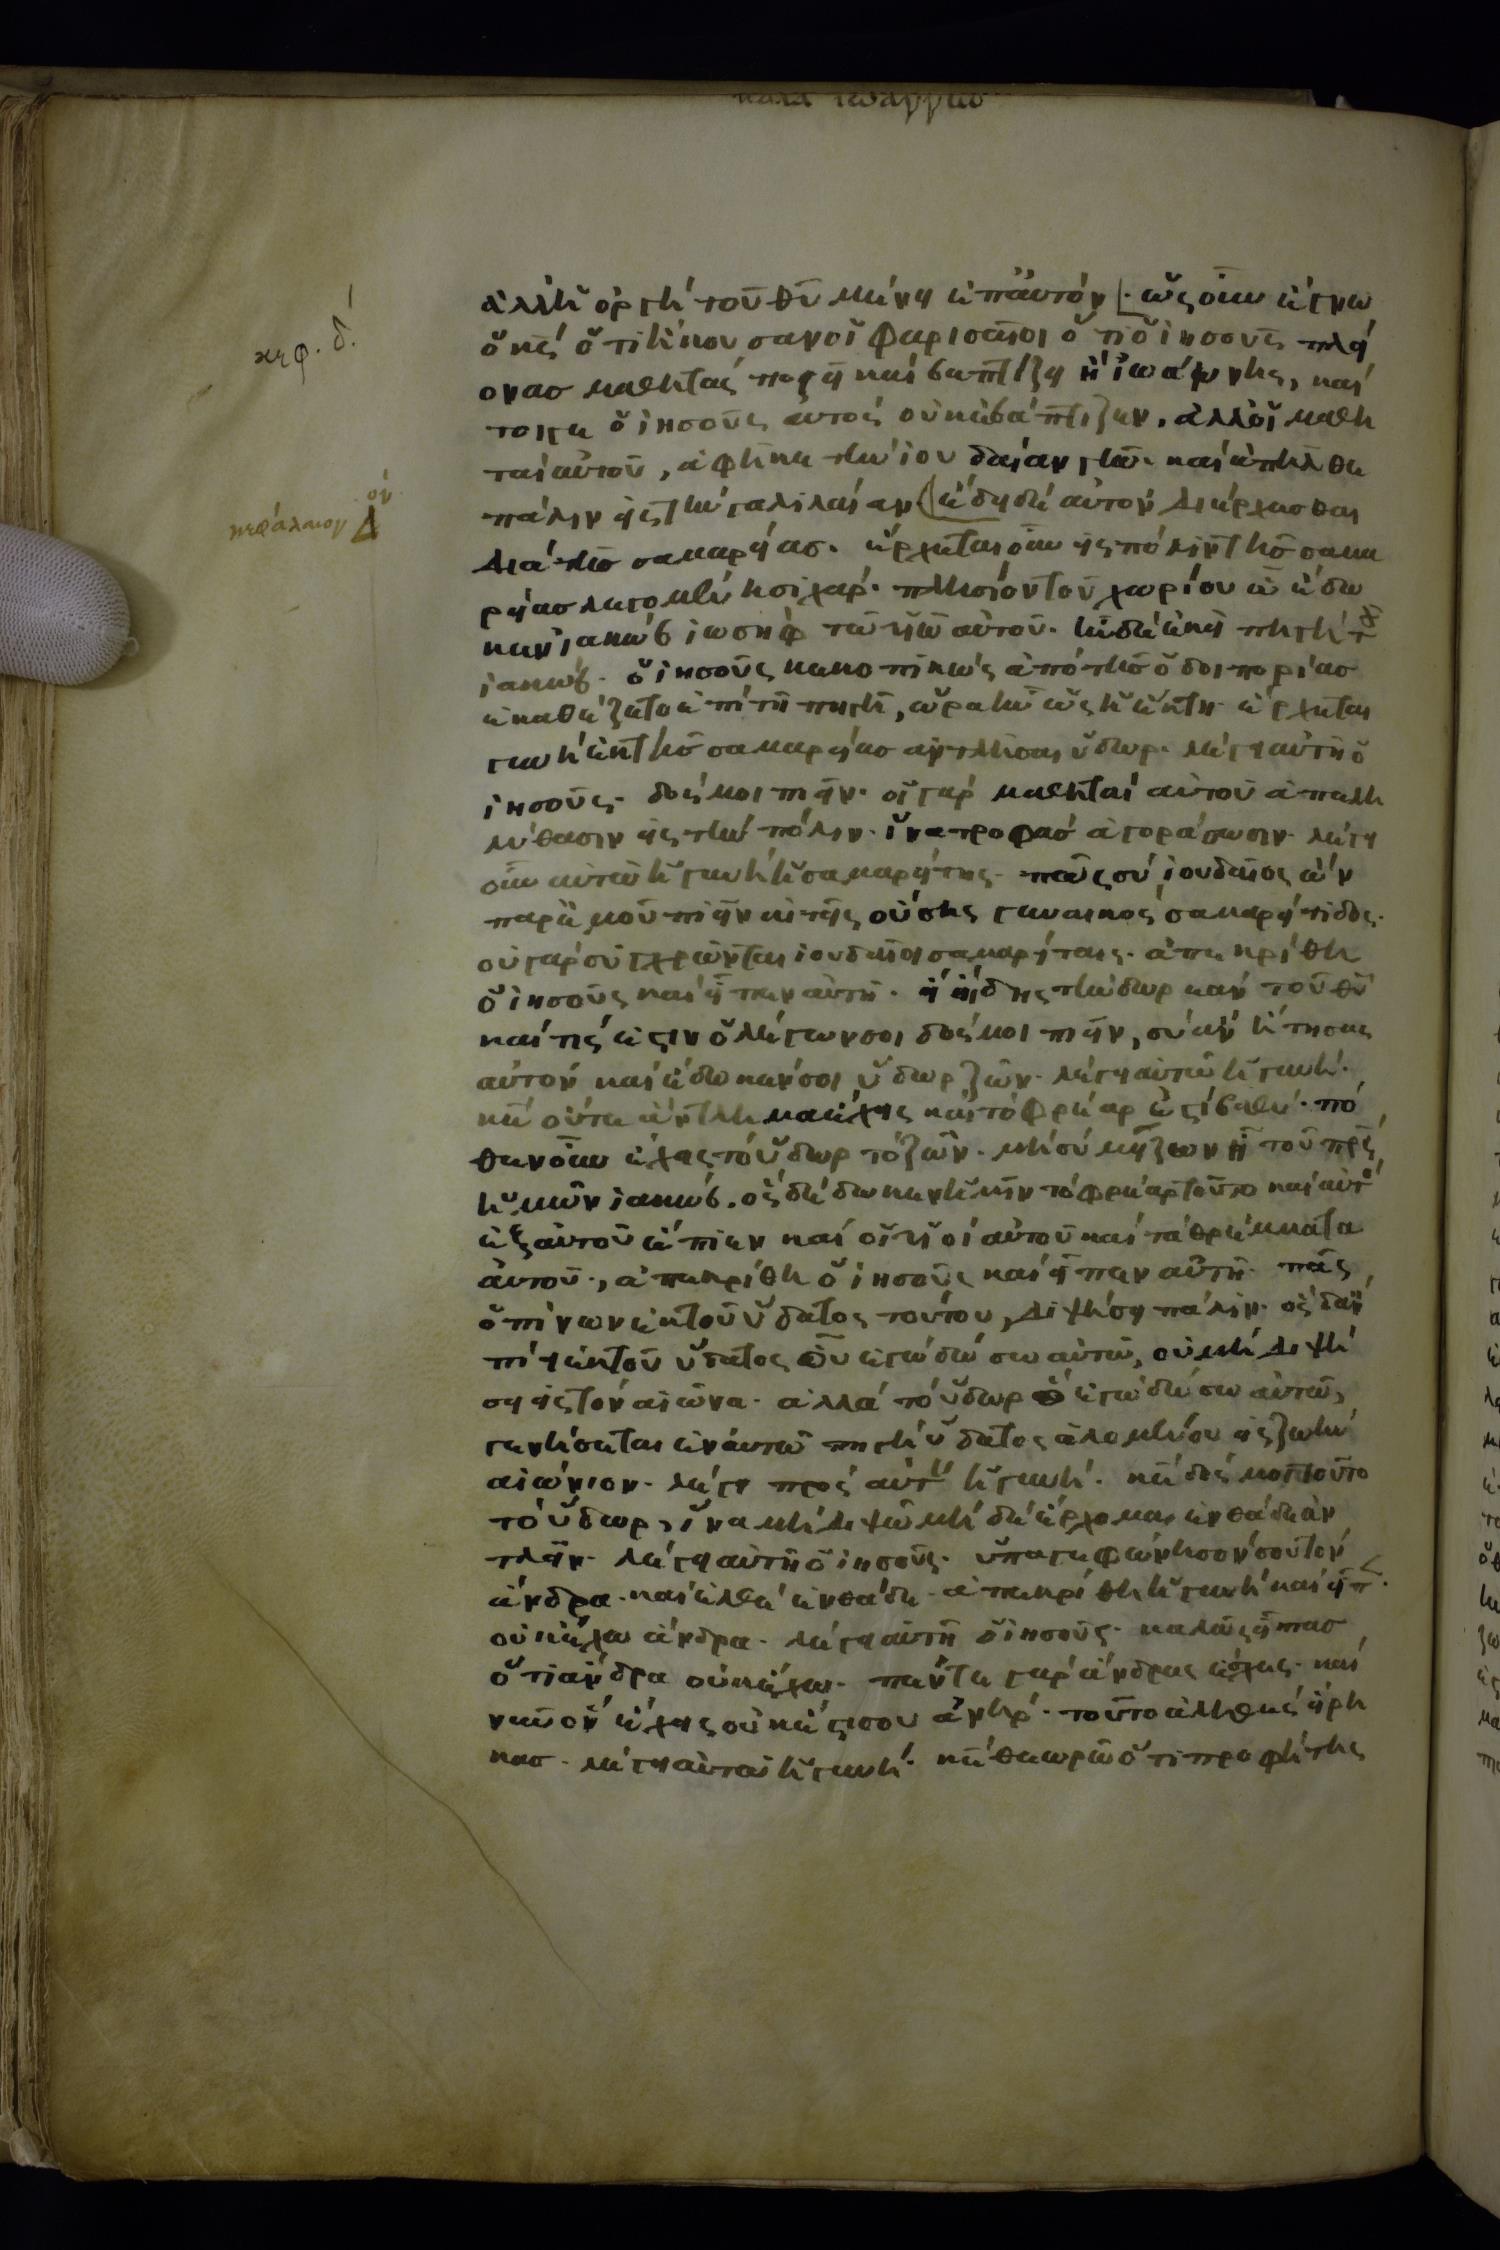 κατα ιωαννην
κεφ. δ΄
κεφάλαιον Δον
ἀλλ' ἡ ὀργὴ τοῦ θῦ μένει ἐπ' αὐτόν· ὡς οὖν ἔγνω
ὁ κς ὅτι ἤκουσαν οἱ φαρισαῖοι ὅτι ὁ ἰησοῦς πλεί
ονας μαθητὰς ποιεῖ καὶ βαπτίζει ἢ ἰωάννης, καί
τοιγε ὁ ἰησοῦς αυτὸς οὐκ ἐβάπτιζεν, ἀλλ' οἱ μαθη
ταὶ αὐτοῦ, ἀφῆκε τὴν ἰουδαίαν γῆν· καὶ ἀπῆλθε
πάλιν εἰς τὴν γαλιλαίαν· ἔδει δὲ αὐτὸν διέρχεσθαι
διὰ τῆς σαμαρείας· ἔρχεται οὖν εἰς πόλιν τῆς σαμα
ρείας λεγομένη σιχάρ· πλησίον τοῦ χωρίου ὃ ἔδω
κεν ἰακὼβ ἰωσὴφ τῶ υἱῶ αὐτοῦ· ἦν δὲ ἐκεῖ πηγὴ τοῦ
ἰακώβ· ὁ ἰησοῦς κεκοπιακὼς ἀπὸ τῆς ὁδοιπορίας
ἐκαθέζετο ἐπὶ τῆ πηγῆ, ὥρα ἦν ὡς ἕκτη· ἔρχεται
γυνὴ ἐκ τῆς σαμαρείας αντλῆσαι ὕδωρ· λέγει αὐτῆ ὁ
ἰησοῦς· δός μοι πιεῖν· οἱ γὰρ μαθηταὶ αὐτοῦ ἀπελη
λύθασιν εἰς τὴν πόλιν· ἵνα τροφὰς ἀγοράσωσιν· λέγει
οὖν αὐτῶ ἡ γυνὴ ἡ σαμαρείτης· πῶς σὺ ἰουδαῖος ὢν
παρ' ἐμοῦ πιεῖν αἰτεῖς οὔσης γυναικὸς σαμαρείτιδος·
οὐ γὰρ συγχρῶνται ἰουδαῖοι σαμαρείταις· ἀπεκρίθη
ὁ ἰησοῦς καὶ εἶπεν αὐτῆ· εἰ ἤδεις τὴν δωρεὰν τοῦ θῦ
καὶ τίς ἐστιν ὁ λέγων σοι δός μοι πιεῖν, σὺ ἂν ἤτησας
αὐτὸν καὶ ἔδωκεν σοι ὕδωρ ζῶν· λέγει αὐτῶ ἡ γυνή·
κε οὔτε ἄντλημα ἔχεις καὶ τὸ φρέαρ ἐστὶ βαθύ· πό
θεν οὖν ἔχεις τὸ ὕδωρ τὸ ζῶν· μὴ σὺ μείζων εἶ τοῦ πρς
ἡμῶν ἰακώβ· ὃς δέδωκεν ἡμῖν τὸ φρέαρ τοῦτο καὶ αὐτὸς
ἐξ αὐτοῦ ἔπιεν καὶ οἱ υἱοὶ αὐτοῦ καὶ τὰ θρέμματα
αὐτοῦ·, ἀπεκρίθη ὁ ἰησοῦς καὶ εἶπεν αὐτῆ· πᾶς
ὁ πίνων ἐκ τοῦ ὕδατος τούτου, διψήσει πάλιν· ὃς δ' ἂν
πίη ἐκ τοῦ ὕδατος οὗ ἐγὼ δώσω αὐτῶ, οὐ μὴ διψή
σει εἰς τὸν αἰῶνα· ἀλλὰ τὸ ὕδωρ ὃ ἐγὼ δώσω αὐτῶ,
γενήσεται ἐν αὐτῶ πηγὴ ὕδατος ἁλομένου εἰς ζωὴν
αἰώνιον· λέγει πρὸς αὐτὸν ἡ γυνή· κε δός μοι τοῦτο
τὸ ὕδωρ, ἵνα μὴ διψῶ μὴ δὲ ἔρχομαι ἐνθάδε ἀν
τλεῖν· λέγει αὐτῆ ὁ ἰησοῦς· ὕπαγε φώνησον σοῦ τὸν
ἄνδρα· καὶ ἐλθὲ ἐνθάδε· ἀπεκρίθη ἡ γυνὴ καὶ εἶπ·
οὐκ ἔχω ἄνδρα· λέγει αὐτῆ ὁ ἰησοῦς· καλῶς εἶπας
ὅτι ἄνδρα οὐκ ἔχω· πέντε γὰρ ἄνδρας ἔσχες· καὶ
νῦν ὃν ἔχεις οὐκ ἔστι σου ἀνήρ· τοῦτο ἀληθὲς εἴρη
κας· λέγει αὐτῶ ἡ γυνή· κε θεωρῶ ὅτι προφήτης